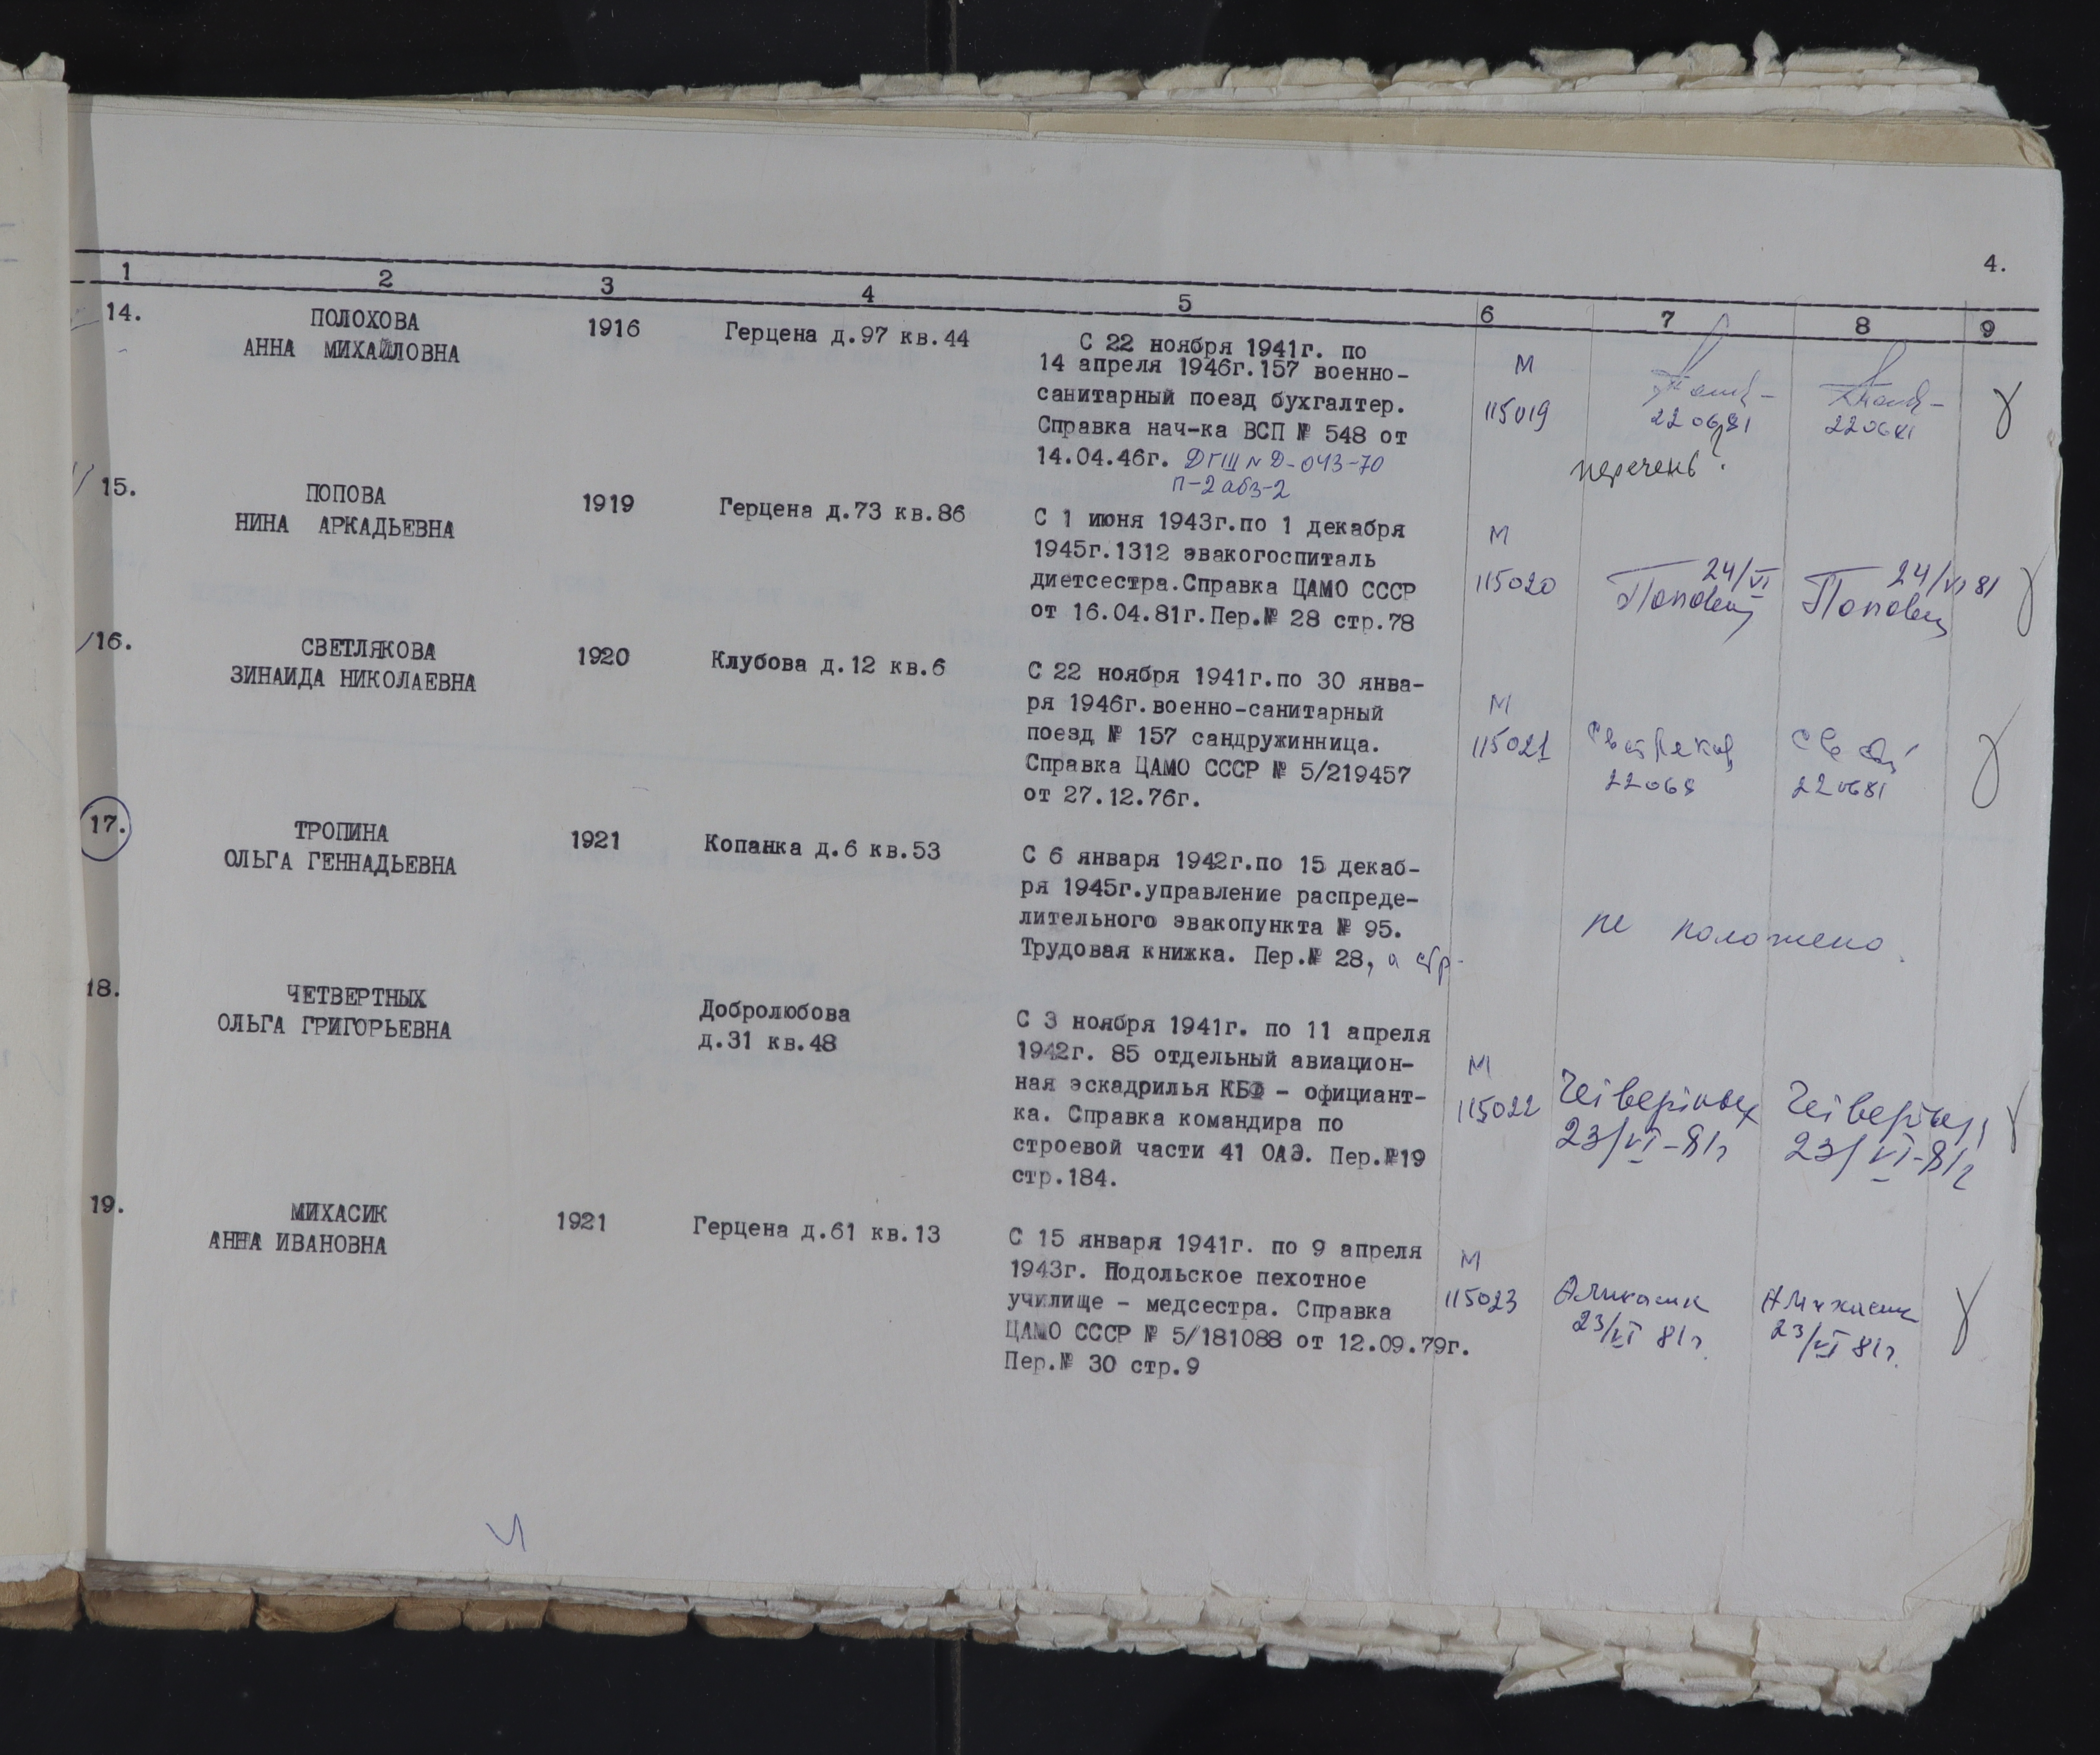 4.
1 2 3 4 5 6 7 8 9
14. ПОЛОХОВА
АННА МИХАЙЛОВНА
1916
Герцена д.97 кв.44
С 22 ноября 1941г. по
14 апреля 1946г.157 военно-
санитарный поезд бухгалтер.
Справка нач-ка ВСП № 548 от
14.04.46г. ДГШ № Д-043-70
п-2 абз-2
М
115019
220681
220681
перечень?
15. ПОПОВА
НИНА АРКАДЬЕВНА
1919
Герцена д.73 кв.86
С 1 июня 1943г.по 1 декабря
1945г.1312 эвакогоспиталь
диетсестра.Справка ЦАМО СССР
от 16.04.81г.Пер.№ 28 стр.78
М
115020
24/VI
24/VI 81
16. СВЕТЛЯКОВА
ЗИНАИДА НИКОЛАЕВНА
1920
Клубова д.12 кв.6
С 22 ноября 1941г.по 30 янва-
ря 1946г.военно-санитарный
поезд № 157 сандружинница.
Справка ЦАМО СССР № 5/219457
от 27.12.76г.
М
115021
22068
220681
17. ТРОПИНА
ОЛЬГА ГЕННАДЬЕВНА
1921
Копанка д.6 кв.53
С 6 января 1942г.по 15 декаб-
ря 1945г.управление распреде-
лительного эвакопункта № 95.
Трудовая книжка. Пер.№ 28, стр-
не положено.
18. ЧЕТВЕРТНЫХ
ОЛЬГА ГРИГОРЬЕВНА
Добролюбова
д.31 кв.48
С 3 ноября 1941г. по 11 апреля
1942г. 85 отдельный авиацион-
ная эскадрилья КБФ - официант-
ка. Справка командира по
строевой части 41 ОАЭ. Пер.№19
стр.184.
М
115022
Четвертных
23/VI-81г
23/VI-81г
19. МИХАСИК
АННА ИВАНОВНА
1921
Герцена д.61 кв.13
С 15 января 1941г. по 9 апреля
1943г. Подольское пехотное
училище - медсестра. Справка
ЦАМО СССР № 5/181088 от 12.09.79г.
Пер.№ 30 стр.9
М
115023
АМихасик
23/VI 81г.
АМихасик
23/VI 81г.